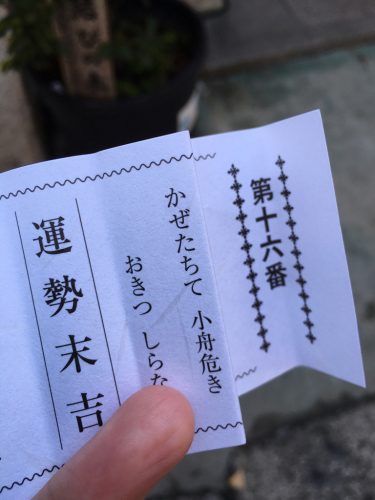 第十六番
かぜたちて 小舟危き
おきつ しらな
運勢末吉